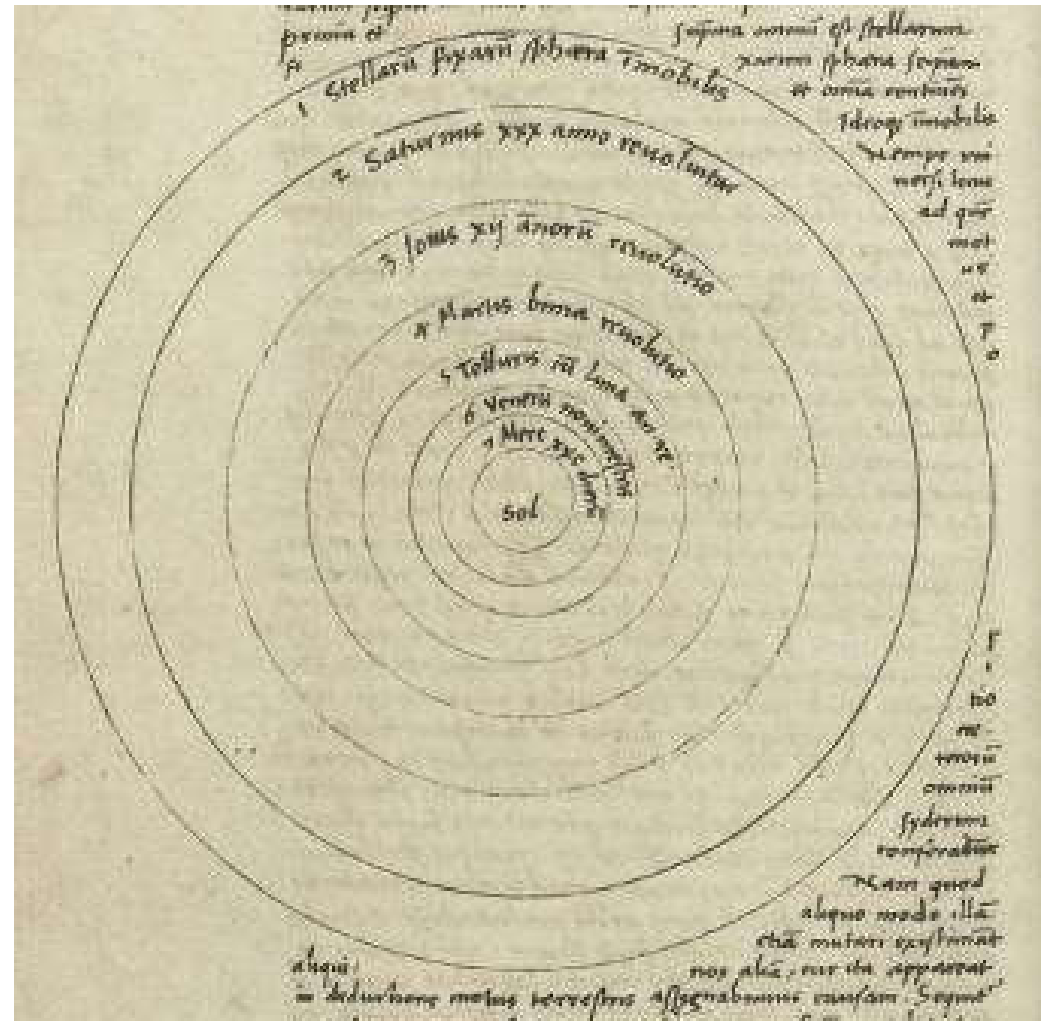 primū et
suprema omniū est stellarum
xarum sphæra seipsam
et omīa continēs
Ideoqȝ īmobilis
Nempe vni
uersi locus
ad quē
mot
us
et
p
o
1 Stellarū fixarū sphæra īmobilis
2 Saturnus xxx anno reuoluitur
3 Iouis xij annorū reuolutio
4 Martis bima reuolutio
5 Telluris cū luna an re
6 Veneris nonimestris
7 Merc xxc dierū
Sol
r
i
tio
ce
terorū
omniū
syderum
conferatur
Nam quod
aliquo modo illā
etiā mutari existimāt
aliqui: nos aliā, cur ita appareat
in deductione motus terrestris assignabimus causam. Sequit'